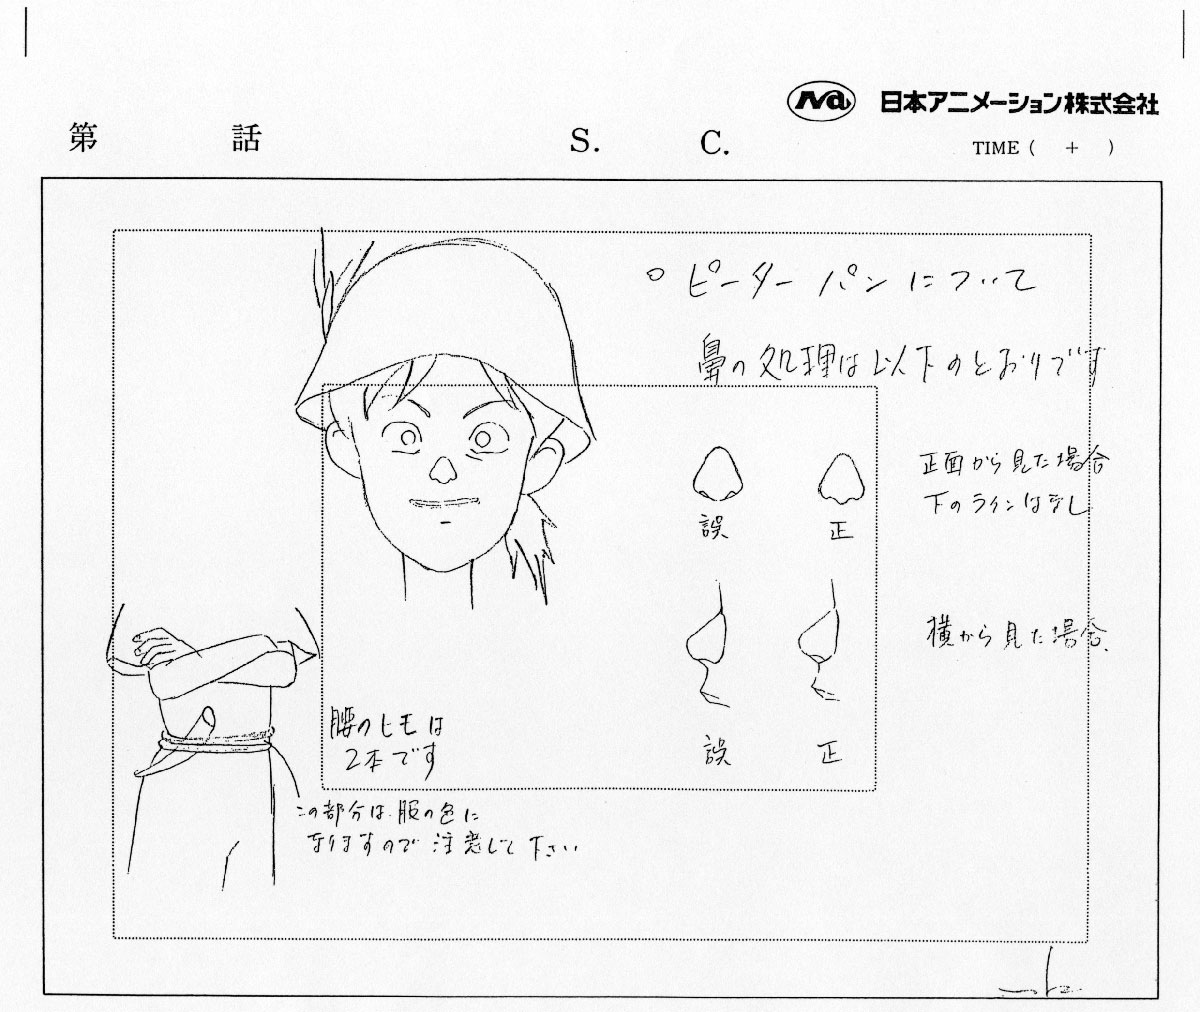 日本アニメーション株式会社
第 話 S. C.
TIME ( + )
ピーターパンについて
鼻の処理は以下のとおりです
正面から見た場合
下のラインはなし
誤 正
横から見た場合
誤 正
腰のヒモは
2本です
この部分は服の色に
なりますので注意して下さい